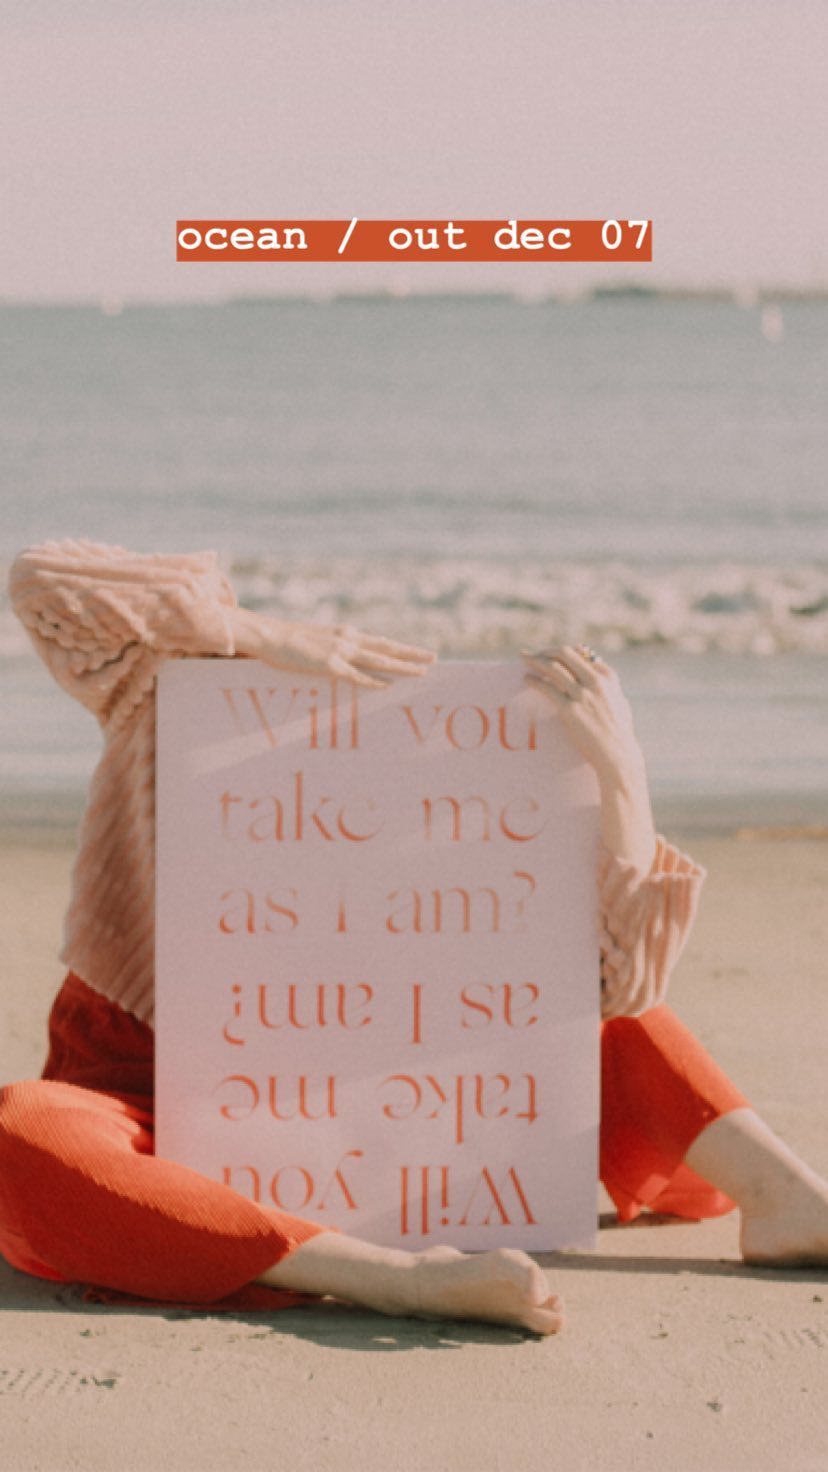 ocean / out dec 07
Will you
take me
as I am?
as I am?
take me
Will you